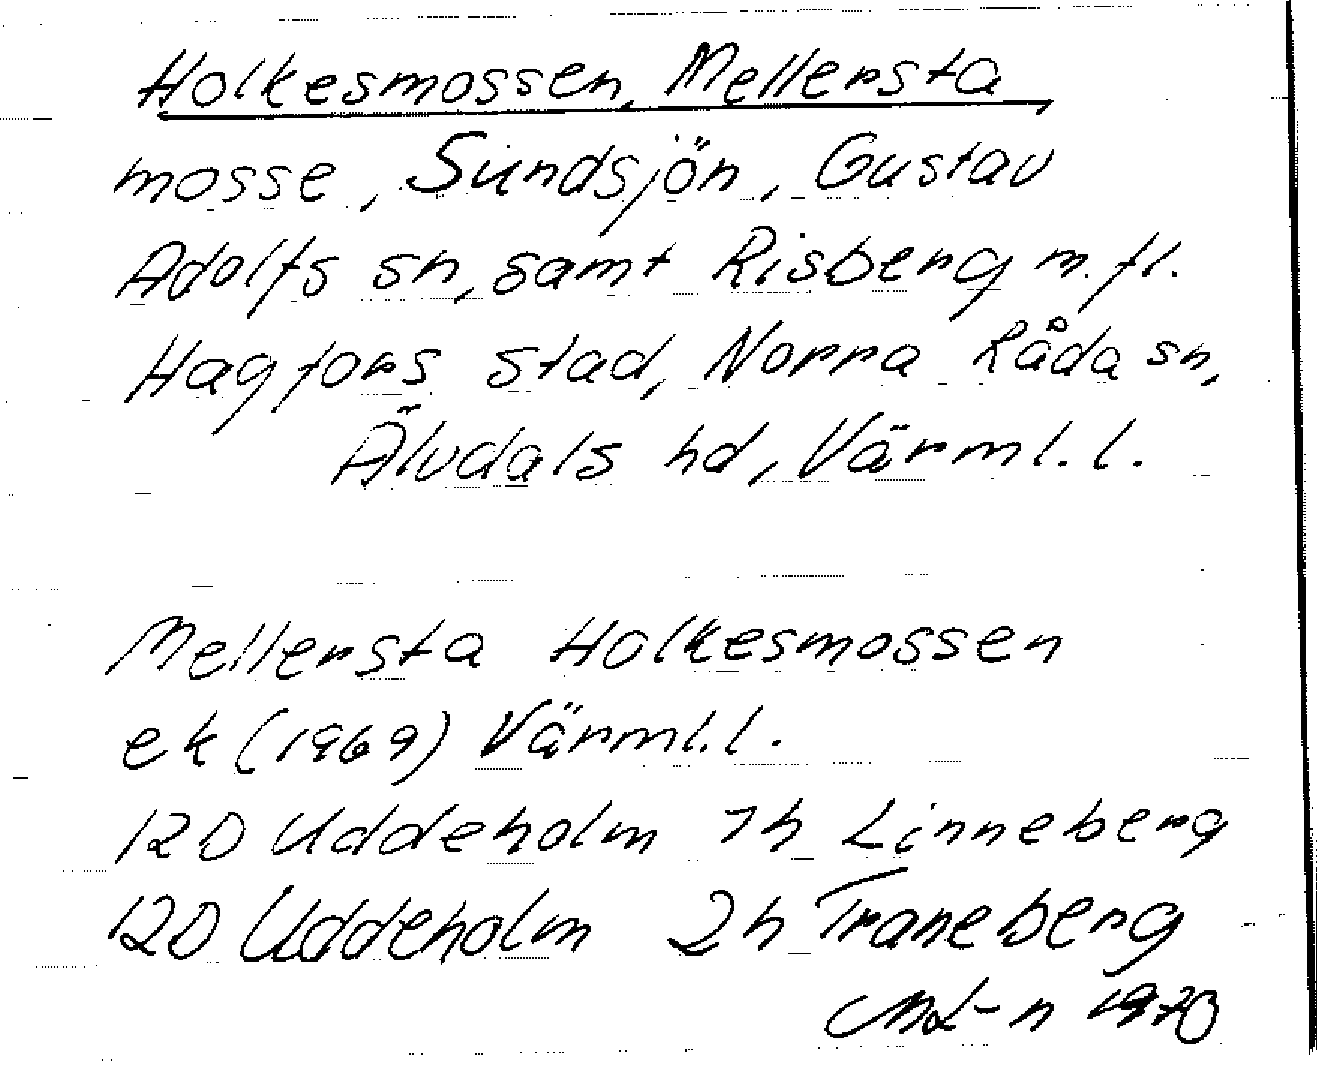 Holkesmossen, Mellersta
mosse, Sundsjön, Gustav
Adolfs sn, samt Risberg m.fl.
Hagfors stad, Norra Råda sn,
Älvdals hd, Värml.l.
Mellersta Holkesmossen
ek (1969) Värml.l.
12D Uddeholm 7h Linneberg
12D Uddeholm 2h Traneberg
ML-n 1970